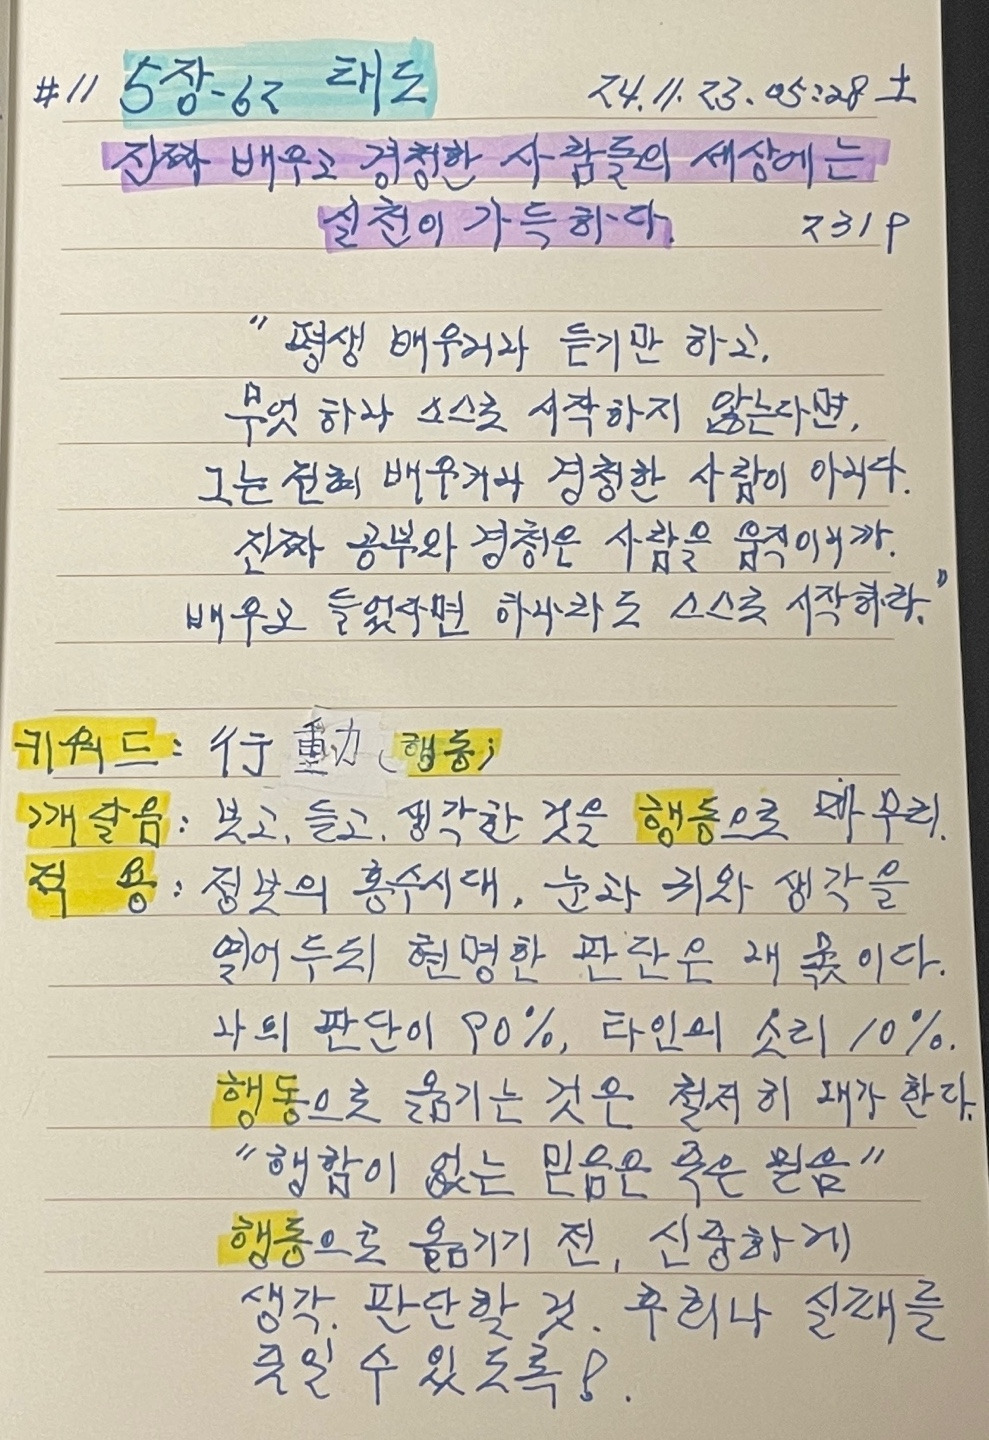 #11 5장-62 태도 24.11.23.05:28 土
진짜 배우고 경청한 사람들의 세상에는
실천이 가득하다. 231P
"평생 배우거나 듣기만 하고,
무엇 하나 스스로 시작하지 않는다면,
그는 전혀 배우거나 경청한 사람이 아니다.
진짜 공부와 경청은 사람을 움직이니까.
배우고 들었다면 하나라도 스스로 시작하라."
키워드: 行動(행동)
깨달음: 보고, 듣고, 생각한 것을 행동으로 마무리.
적용: 정보의 홍수시대, 눈과 귀와 생각을
열어두되 현명한 판단은 내 몫이다.
나의 판단이 90%, 타인의 소리 10%.
행동으로 옮기는 것은 철저히 내가 한다.
"행함이 없는 믿음은 죽은 믿음"
행동으로 옮기기 전, 신중하게
생각, 판단할 것. 후회나 실패를
줄일 수 있도록!.